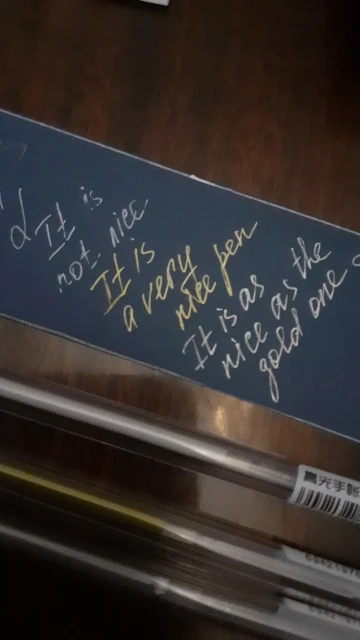 It is
not nice
It is
a very
nice pen
It is as
nice as the
gold one
高光手